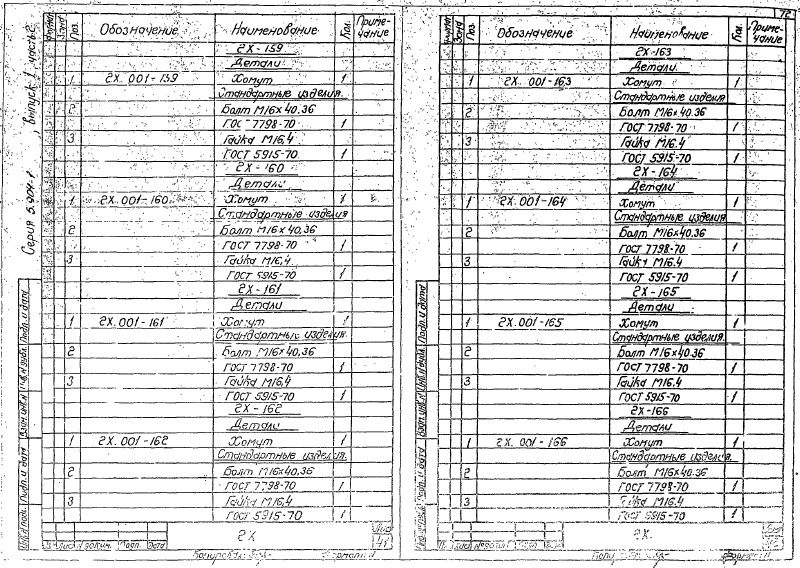 Серия 5.904-1, выпуск 1, часть 2
Формат Зона Поз. Обозначение Наименование Кол. Примечание
2Х-159
Детали
1 2Х.001-159 Хомут 1
Стандартные изделия
2 Болт М16х40.36
ГОСТ 7798-70 1
3 Гайка М16.4
ГОСТ 5915-70 1
2Х-160
Детали
1 2Х.001-160 Хомут 1
Стандартные изделия
2 Болт М16х40.36
ГОСТ 7798-70 1
3 Гайка М16.4
ГОСТ 5915-70 1
2Х-161
Детали
1 2Х.001-161 Хомут 1
Стандартные изделия
2 Болт М16х40.36
ГОСТ 7798-70 1
3 Гайка М16.4
ГОСТ 5915-70 1
2Х-162
Детали
1 2Х.001-162 Хомут 1
Стандартные изделия
2 Болт М16х40.36
ГОСТ 7798-70 1
3 Гайка М16.4
ГОСТ 5915-70 1
2Х
Лист
71
Подп. Дата
Подп. и дата
72
Формат Зона Поз. Обозначение Наименование Кол. Примечание
2Х-163
Детали
1 2Х.001-163 Хомут 1
Стандартные изделия
2 Болт М16х40.36
ГОСТ 7798-70 1
3 Гайка М16.4
ГОСТ 5915-70 1
2Х-164
Детали
1 2Х.001-164 Хомут 1
Стандартные изделия
2 Болт М16х40.36
ГОСТ 7798-70 1
3 Гайка М16.4
ГОСТ 5915-70 1
2Х-165
Детали
1 2Х.001-165 Хомут 1
Стандартные изделия
2 Болт М16х40.36
ГОСТ 7798-70 1
3 Гайка М16.4
ГОСТ 5915-70 1
2Х-166
Детали
1 2Х.001-166 Хомут 1
Стандартные изделия
2 Болт М16х40.36
ГОСТ 7798-70 1
3 Гайка М16.4
ГОСТ 5915-70 1
2Х
Подп. и дата